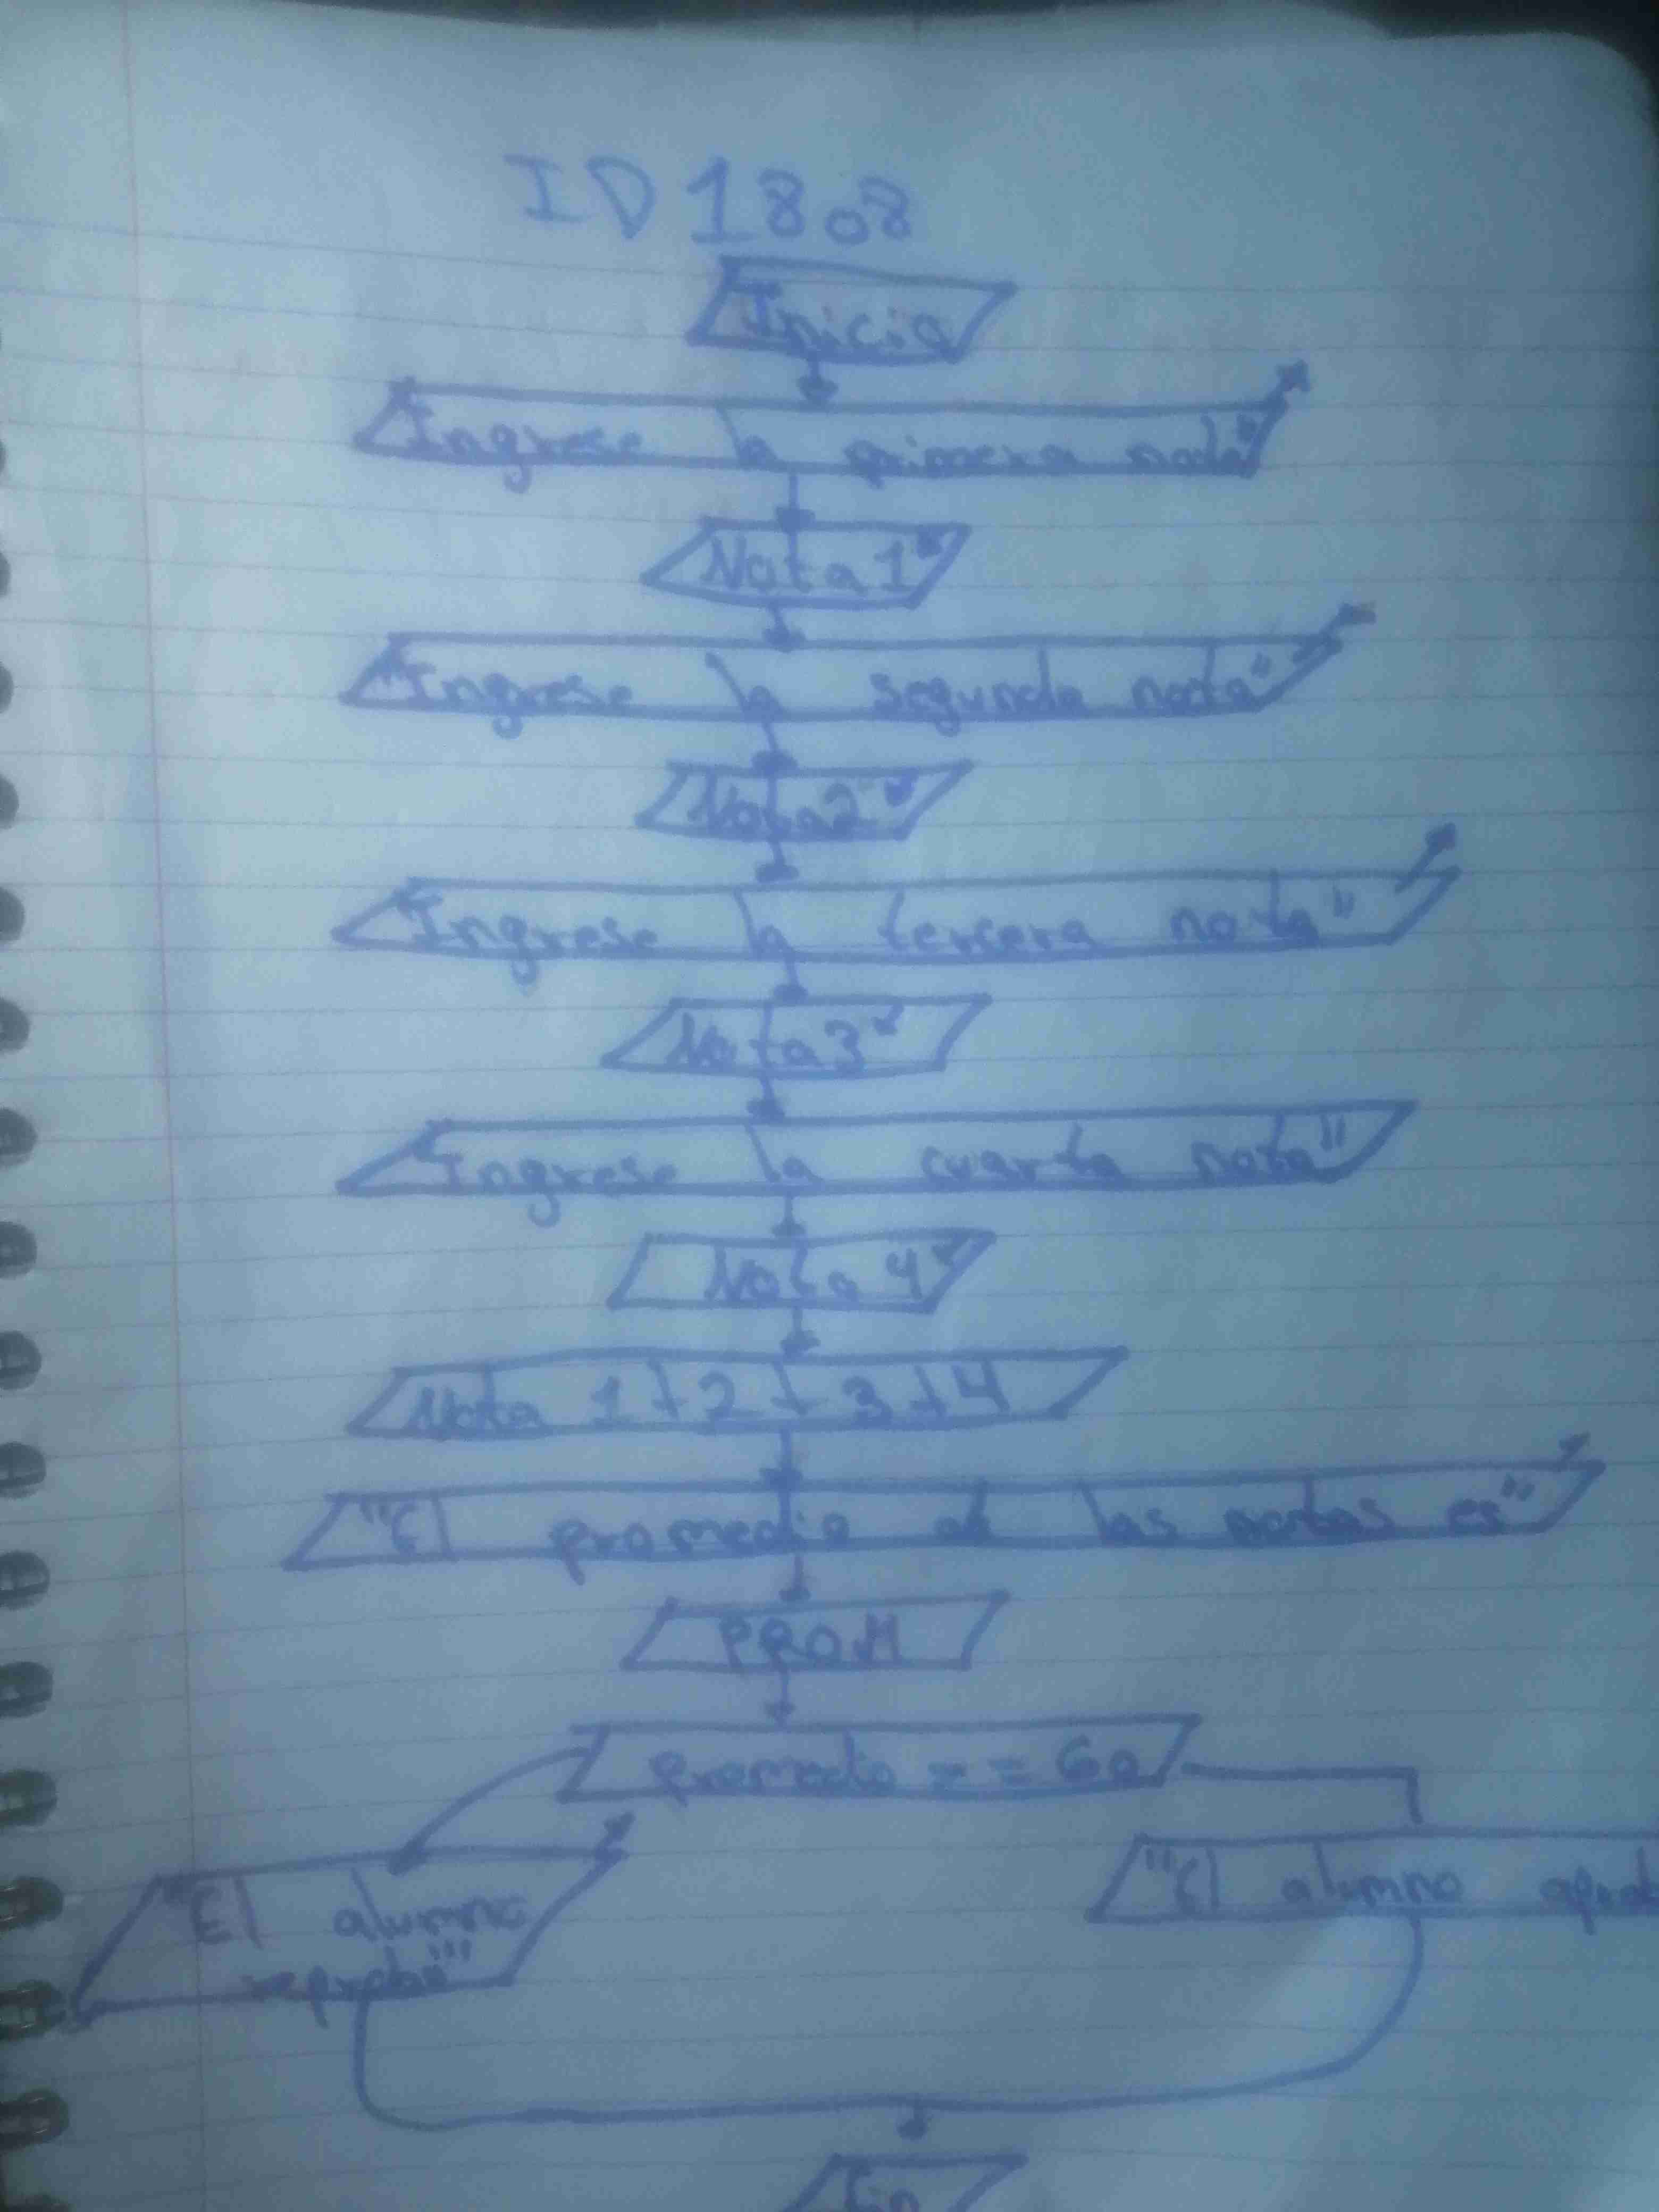 ID 1808
Inicio
"Ingrese la primera nota"
Nota1
"Ingrese la segunda nota"
Nota2
"Ingrese la tercera nota"
Nota3
"Ingrese la cuarta nota"
Nota 4
Nota 1+2+3+4
"El promedio de las notas es"
PROM
promedio == 60
"El alumno
"El alumno
reprobo"
Fin